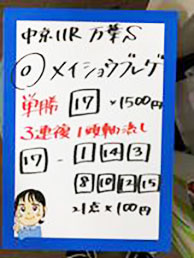 中京11R 万葉S
◎ メイショウブレゲ
単勝 17 ×1500円
3連複 1頭軸流し
17 - 1 14 3
8 10 12 15
21点×100円